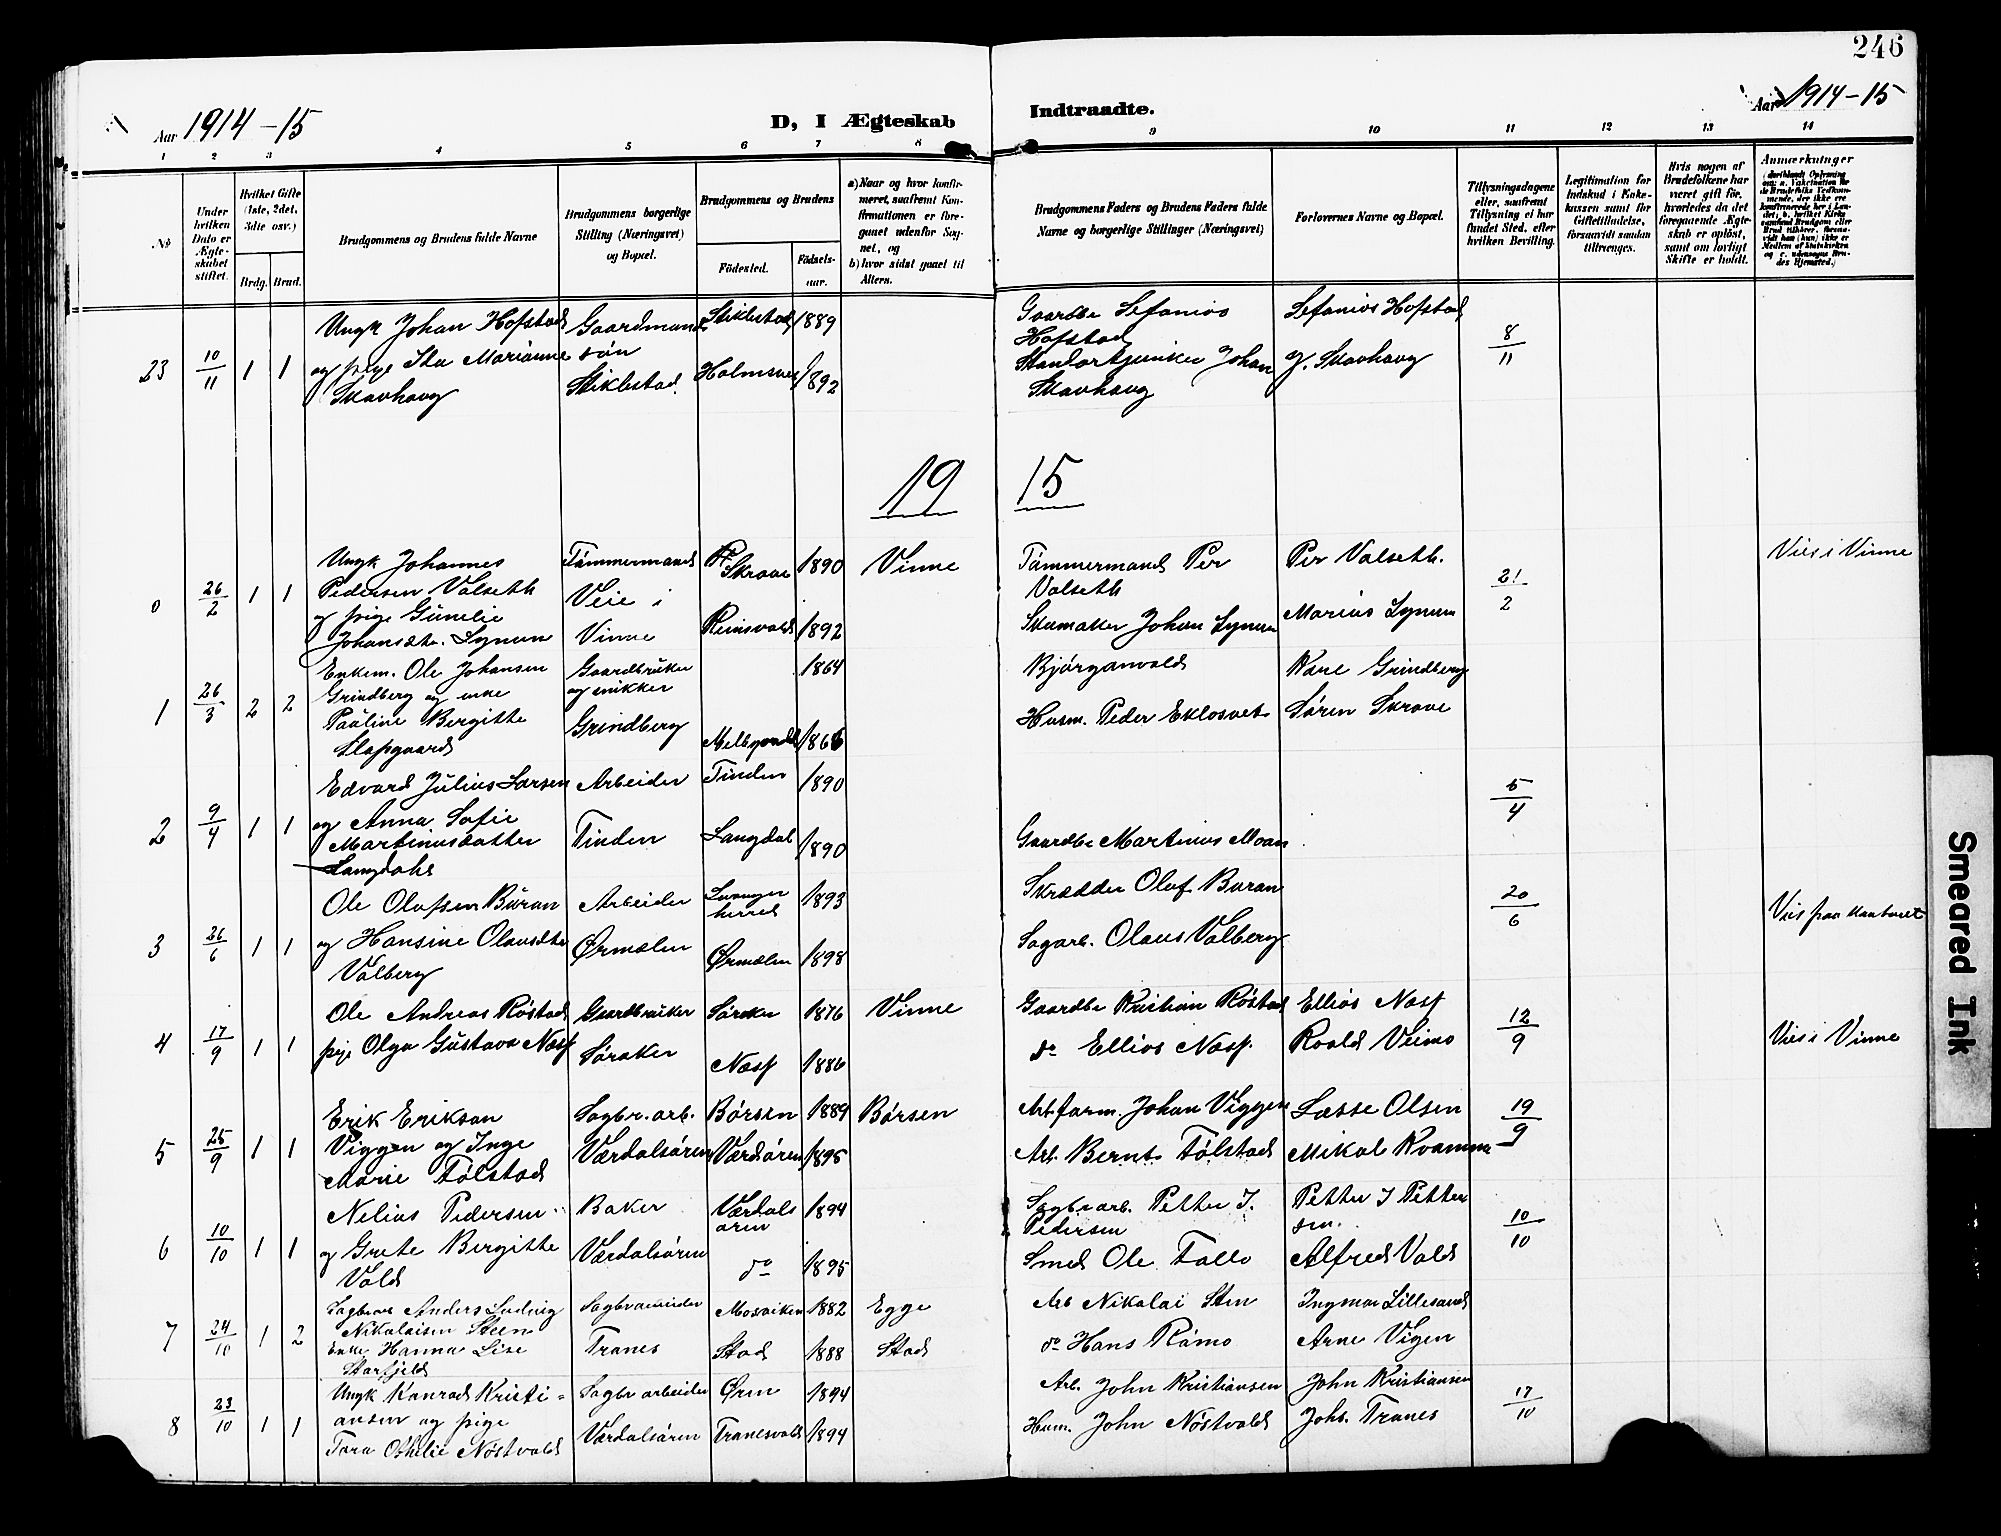 246
Aar 1914-15
D, I Ægteskab
Indtraadte.
Aar 1914-15
1 2 3 4 5 6 7 8 9 10 11 12 13 14
No
Under hvilken Dato er Ægteskabet stiftet.
Hvilket Gifte (1ste, 2det, 3die osv.)
Brdg. Brud.
Brudgommens og Brudens fulde Navne
Brudgommens borgerlige Stilling (Næringsvei) og Bopæl.
Brudgommens og Brudens
Födested.
Födselsaar.
a) Naar og hvor konfirmeret, saafremt Konfirmationen er foregaaet udenfor Sognet, og
b) hvor sidst gaaet til Alters.
Brudgommens Faders og Brudens Faders fulde Navne og borgerlige Stillinger (Næringsvei)
Forlovernes Navne og Bopæl.
Tillysningsdagene eller, saafremt Tillysning ei har fundet Sted, efter hvilken Bevilling.
Legitimation for Indskud i Enkekassen samt for Giftetilladelse, forsaavidt saadan tiltrænges.
Hvis nogen af Brudefolkene har været gift för, hvorledes da det foregaaende Ægteskab er oplöst, samt om lovligt Skifte er holdt.
Anmærkninger
23 10/11 1 1
Ungk Johan Hofstad
og pige Ida Marianne
Skavhaug
Gaardmands
søn
Stiklestad
Stiklestad 1889
Holmsveet 1892
Gaardbr Sefanias
Hofstad
Johan
Skavhaug
Sefanias Hofstad
J. Skavhaug
8/11
19 15
0 26/2 1 1
Ungk Johannes
Pedersen Valseth
og pige Gunelie
Johansdtr. Lynum
Tømmermand
Veie i
Vinne
Skrove 1890
Reinsvald 1892
Vinne
Tømmermand Per
Valseth
Skomaker Johan Lynum
Per Valseth.
Marius Lynum
21/2
Viet i Vinne
1 26/3 2 2
Enkem. Ole Johansen
Grindberg og enke
Pauline Bergitte
Slapgaard
Gaardbruker
og snikker
Grindberg
1864
1866
Bjørganvald
Husm. Peder Eklosvet
Kare Grindberg
Søren Skrove
2 9/4 1 1
Edvard Julius Larsen
og Anna Sofie
Martinusdatter
Langdahl
Arbeider
Tinden
Tinden 1890
Langdal 1890
Gaardbr Martinus Moan
5/4
3 26/6 1 1
Ole Olafsen Buran
og Hansine Olausdtr
Valberg
Arbeider
Ørmælen
Levanger
herred 1893
Ørmælen 1898
Skrædder Olaf Buran
Sagarb. Olaus Valberg
20/6
Viet paa kontoret
4 17/9 1 1
Ole Andreas Røstad
pige Olga Gustava Næss
Gaardbruker
Søraker
Søraker 1876
Næss 1886
Vinne
Gaardbr Kristian Røstad
do Ellias Næss.
Ellias Næss
Roald Veimo
12/9
Viet i Vinne
5 25/9 1 1
Erik Erikson
Viggen og Inge
Marie Tølstad
Sagbr. arb.
Værdalsøren
Børsen 1889
Værdøren 1895
Børsen
Arbform. Johan Viggen
Arb. Bernt Tølstad
Lasse Olsen
Mikal Kvamme
19/9
6 10/10 1 1
Nelius Pedersen
og Grete Bergitte
Vold
Baker
Værdalsøren
Værdals
øren 1894
do 1895
Sagbrarb. Petter J.
Pedersen
Smed Ole Fallo
Petter J Petter
sen.
Alfred Vold
10/10
7 24/10 1 2
Anders Ludvig
Nikolaisen Steen
Enke Hanna Lise
Storfjeld
Sagbrarbeider
Tranes
Mosviken 1882
Stod 1888
Egge
Stod
Arb Nikolai Sten
do Hans Rømo
Ingmar Lillesand
Arne Vigen
8 23/10 1 1
Ungk Konrad Kristi-
ansen og pige
Tora Othelie Nøstvold
Sagbr arbeider
Værdalsøren
Ørm 1894
Tranesvald 1894
Arb. John Kristiansen
Husm. John Nøstvold
John Kristiansen
Johs. Tranes
17/10
Smeared Ink